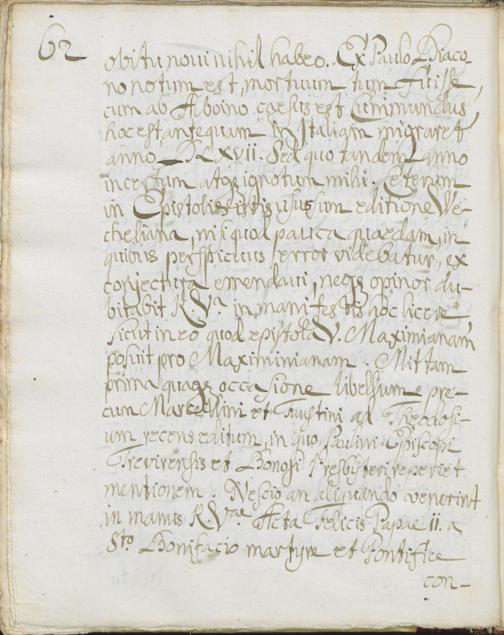 62
obitu noui nihil habeo. Ex Paulo Diaco-
no notum est, mortuum tum fuisse,
cum ab Alboino caesus est Cunimundus,
hoc est, antequam in Italiam migraret
anno DLXVII. Sed quo tandem anno
incertum atq; ignotum mihi. Ceterum
in Epistolis istis usus sum editione We-
cheliana, nisi quod pauca quaedam, in
quibus perspicuus error videbatur, ex
conjectura emendaui, neq; opinor du-
bitabit R.Vª. in manifestis hoc licere,
sicut in eo quod epistola V. Maximianam
posuit pro Maximinianam. Mittam
prima quaq; occasione libellum pre-
cum Marcellini et Faustini ad Theodosi-
um recens editum, in quo Paulini Episcopi
Trevirensis et Bonosi Presbyteri reperiet
mentionem. Nescio an aliquando venerint
in manus R.Vae Acta Felicis Papae II. a
Sto. Bonifacio martyre et Pontifice
con-